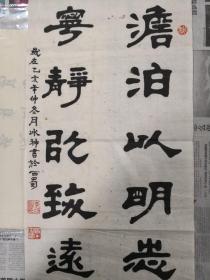 澹泊以明志
寧靜致遠
歲在乙亥年仲冬月冰書於西蜀